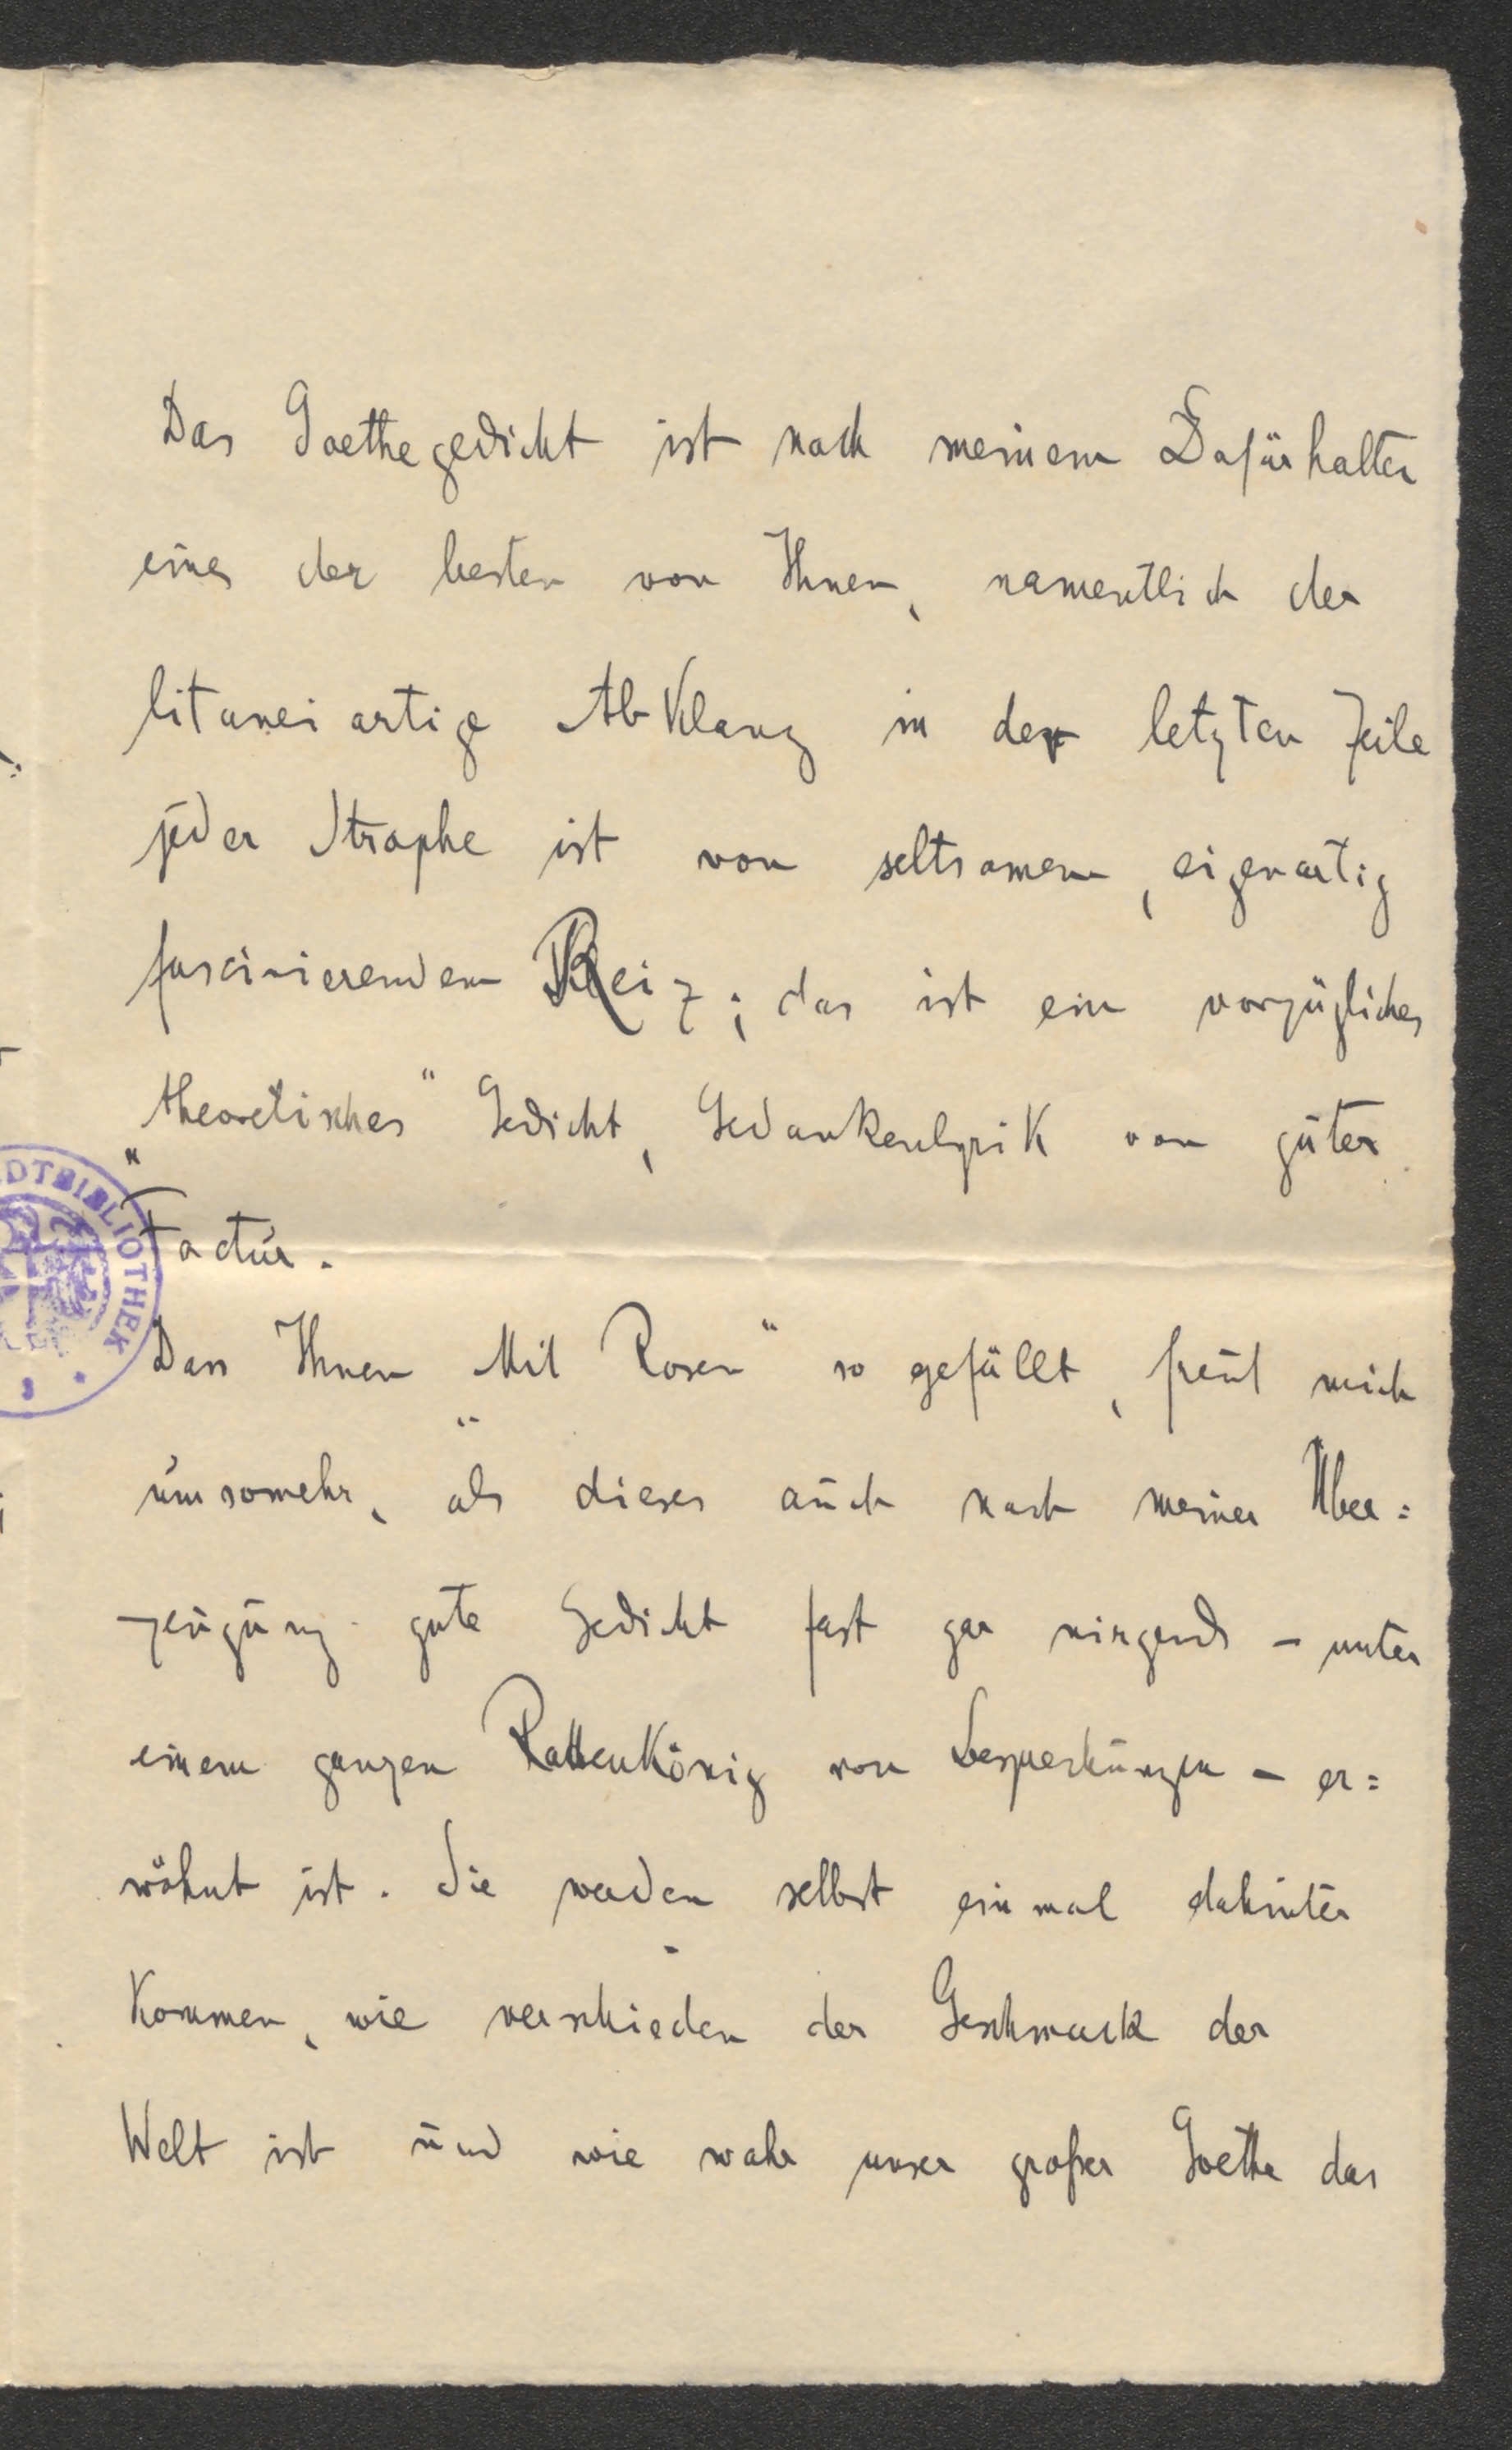 Das Goethegedicht ist nach meinem Dafürhalten
eines der besten von Ihnen, namentlich der
litaneiartige Abklang in der letzten Zeile
jeder Strophe ist von seltsamem, eigenartig
fascinierendem Reiz; das ist ein vorzügliches
„theoretisches" Gedicht, Gedankenlyrik von guter
Factur.
Dass Ihnen „Mit Rosen" so gefällt, freut mich
umsomehr, als dieses auch nach meiner Über=
zeugung gute Gedicht fast gar nirgends – unter
einem ganzen Rattenkönig von Besprechungen – er=
wähnt ist. Sie werden selbst einmal dahinter
kommen, wie verschieden der Geschmack der
Welt ist und wie wahr unser großer Goethe das
DTBIBLIOTHEK